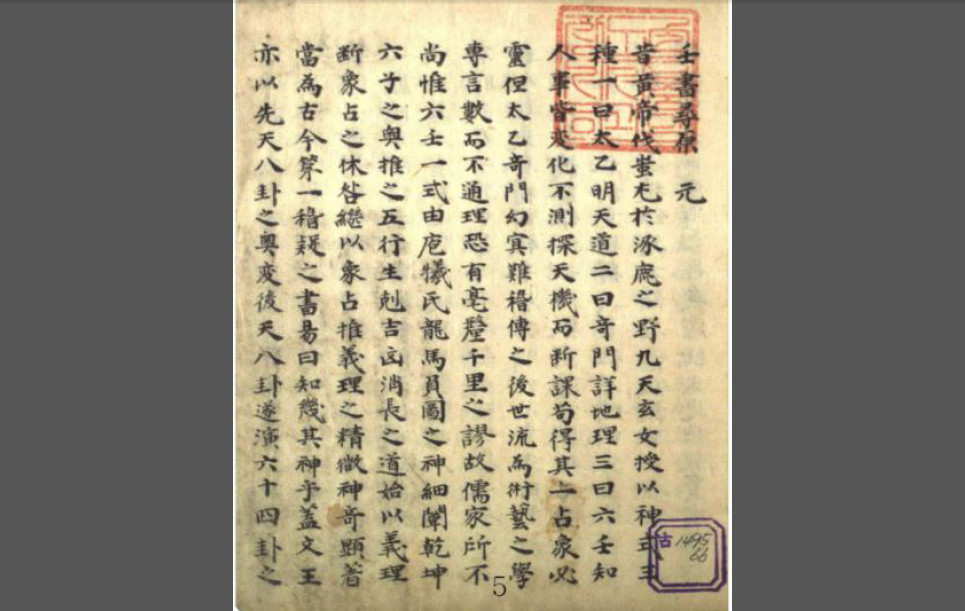 壬書尋原 元
昔黃帝伐蚩尤於涿鹿之野九天玄女授以神式三
種一曰太乙明天道二曰奇門詳地理三曰六壬知
人事皆変化不測探天機而断課苟得其一占象必
靈但太乙奇門幻宾難稽傳之後世流為術藝之學
專言數而不通理恐有亳釐千里之謬故儒家所不
尚惟六壬一式由庖犧氏龍馬負圖之神細闡乾坤
六子之奥推之五行生剋吉凶消長之道始以義理
断象占之休咎繼以象占推義理之精微神奇顕著
當為古今第一稽疑之書易曰知幾其神乎蓋文王
亦以先天八卦之奥変後天八卦遂演六十四卦之
古 1495
66
5